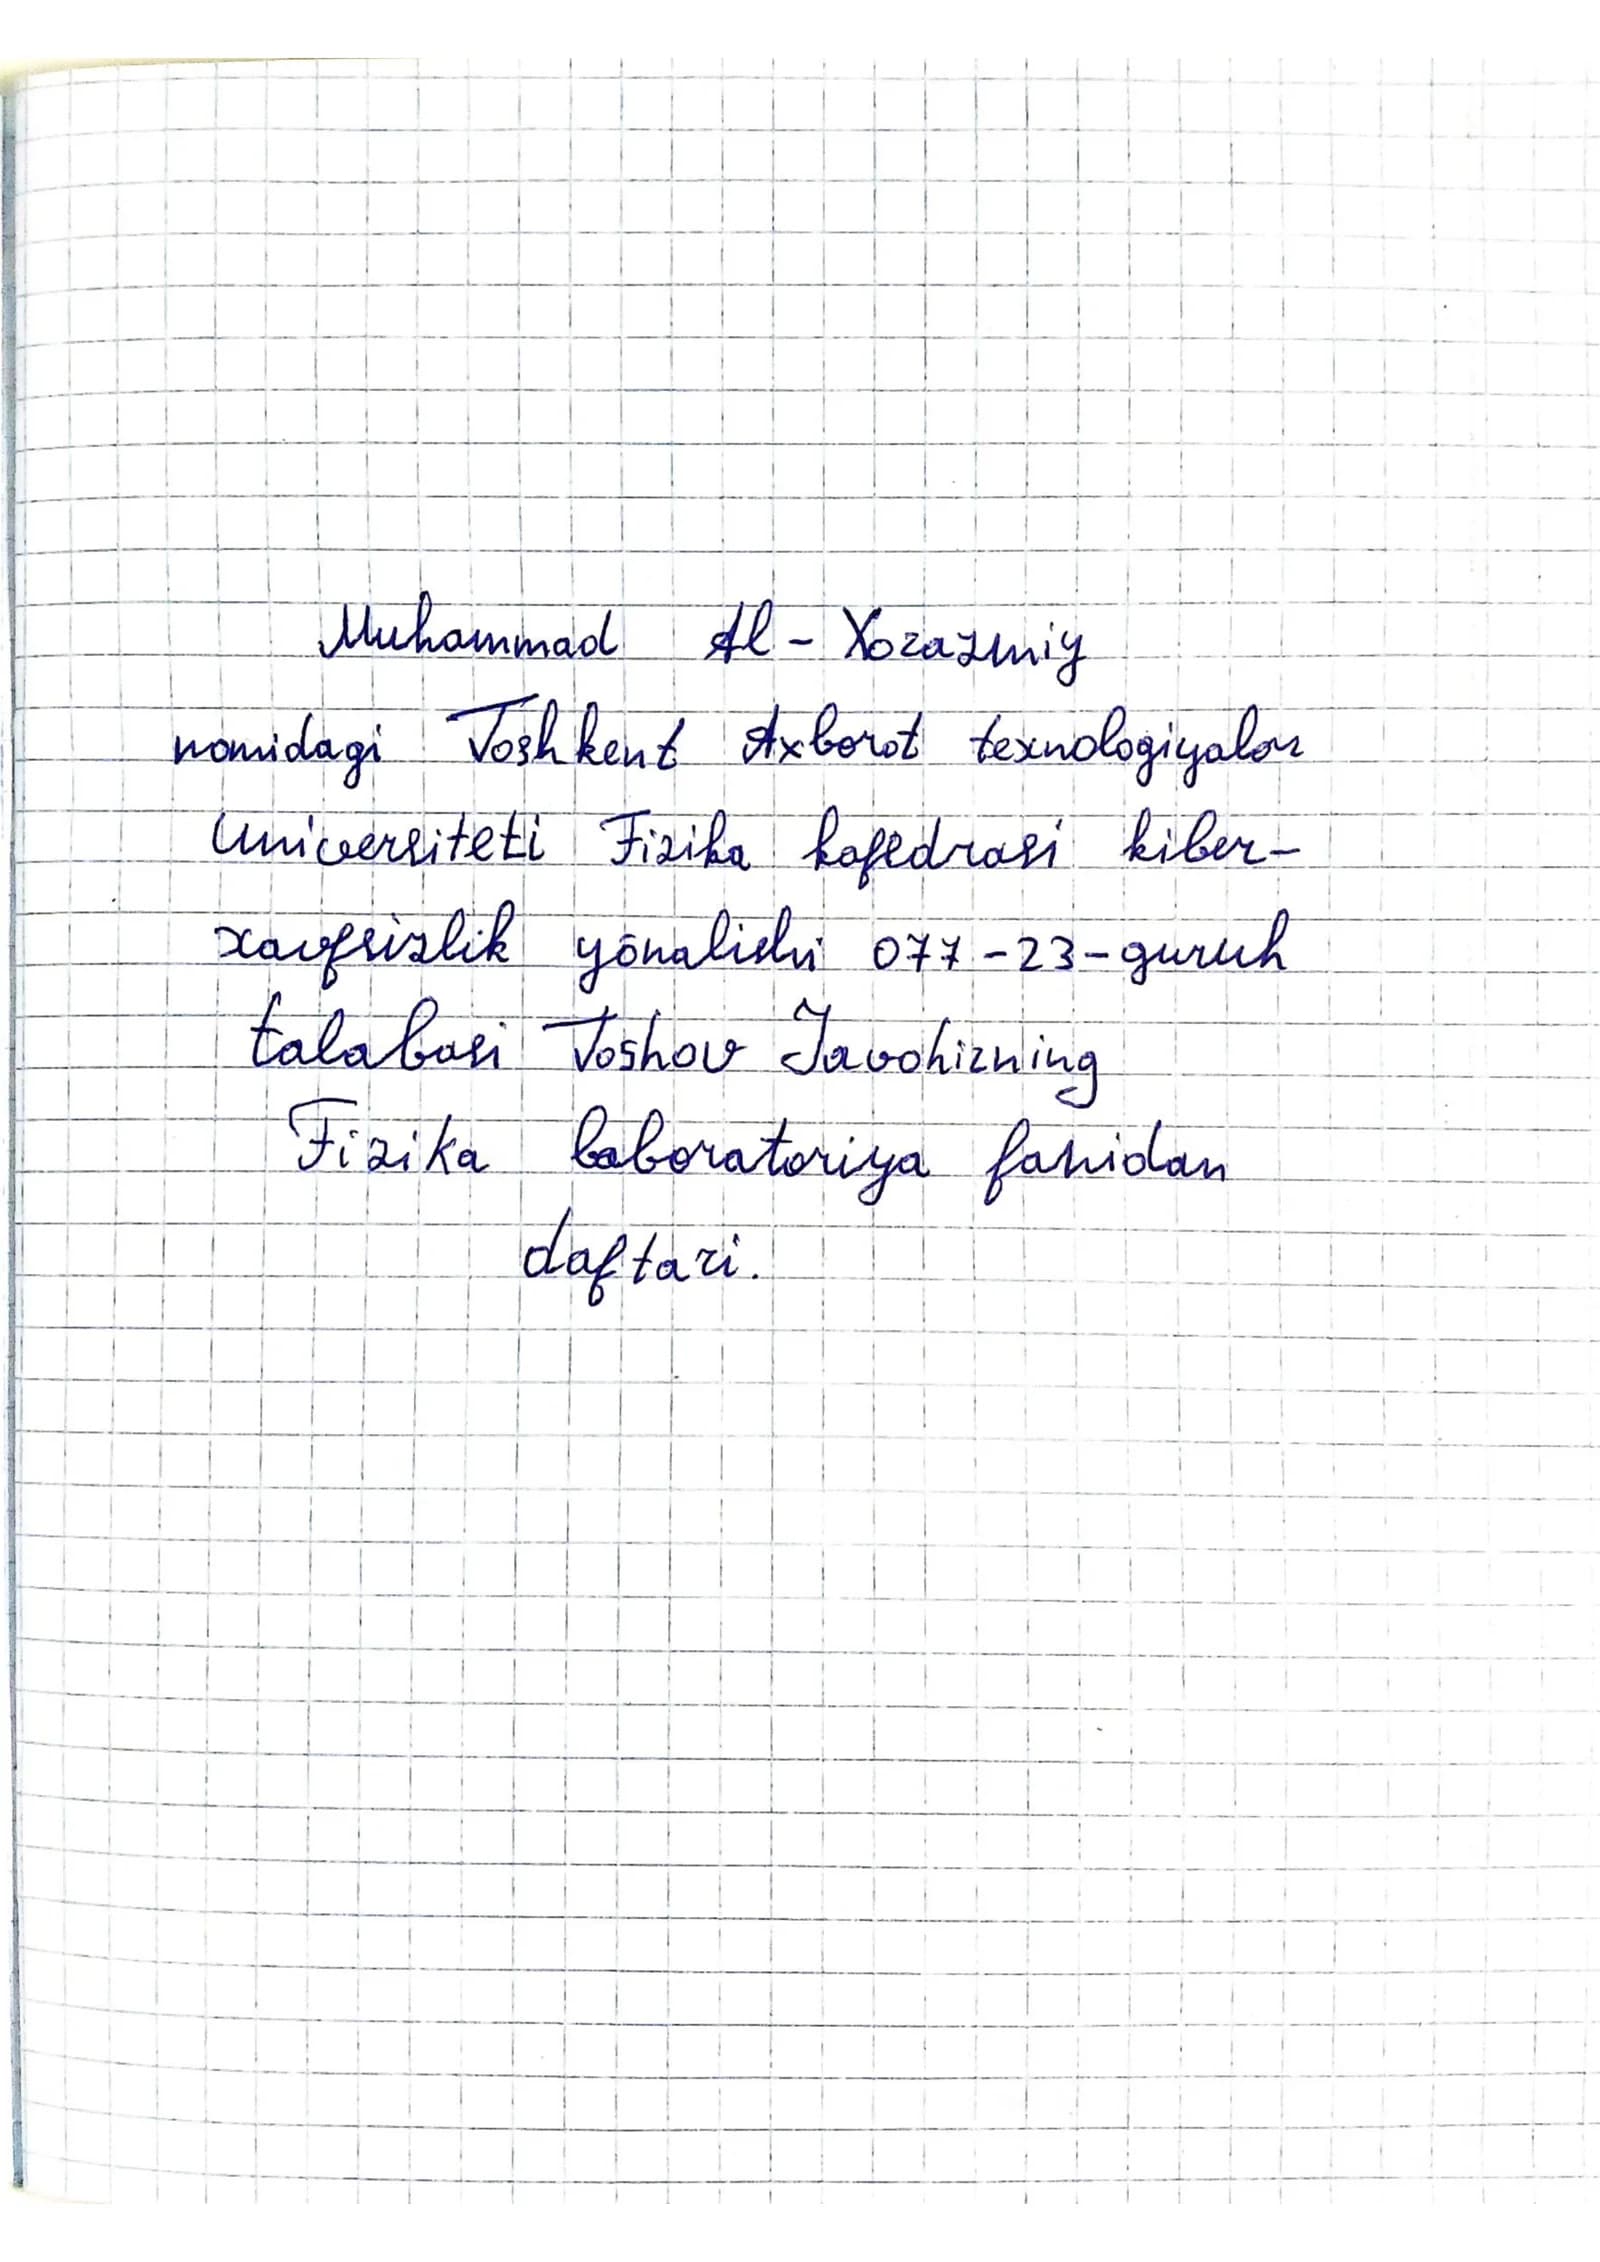 Muhammad Al - Xorazmiy
nomidagi Toshkent Axborot texnologiyalar
Universiteti Fizika kafedrasi kiber-
xavfsizlik yōnalishi 077-23-guruh
talabasi Toshov Javohirning
Fizika laboratoriya fanidan
daftari.